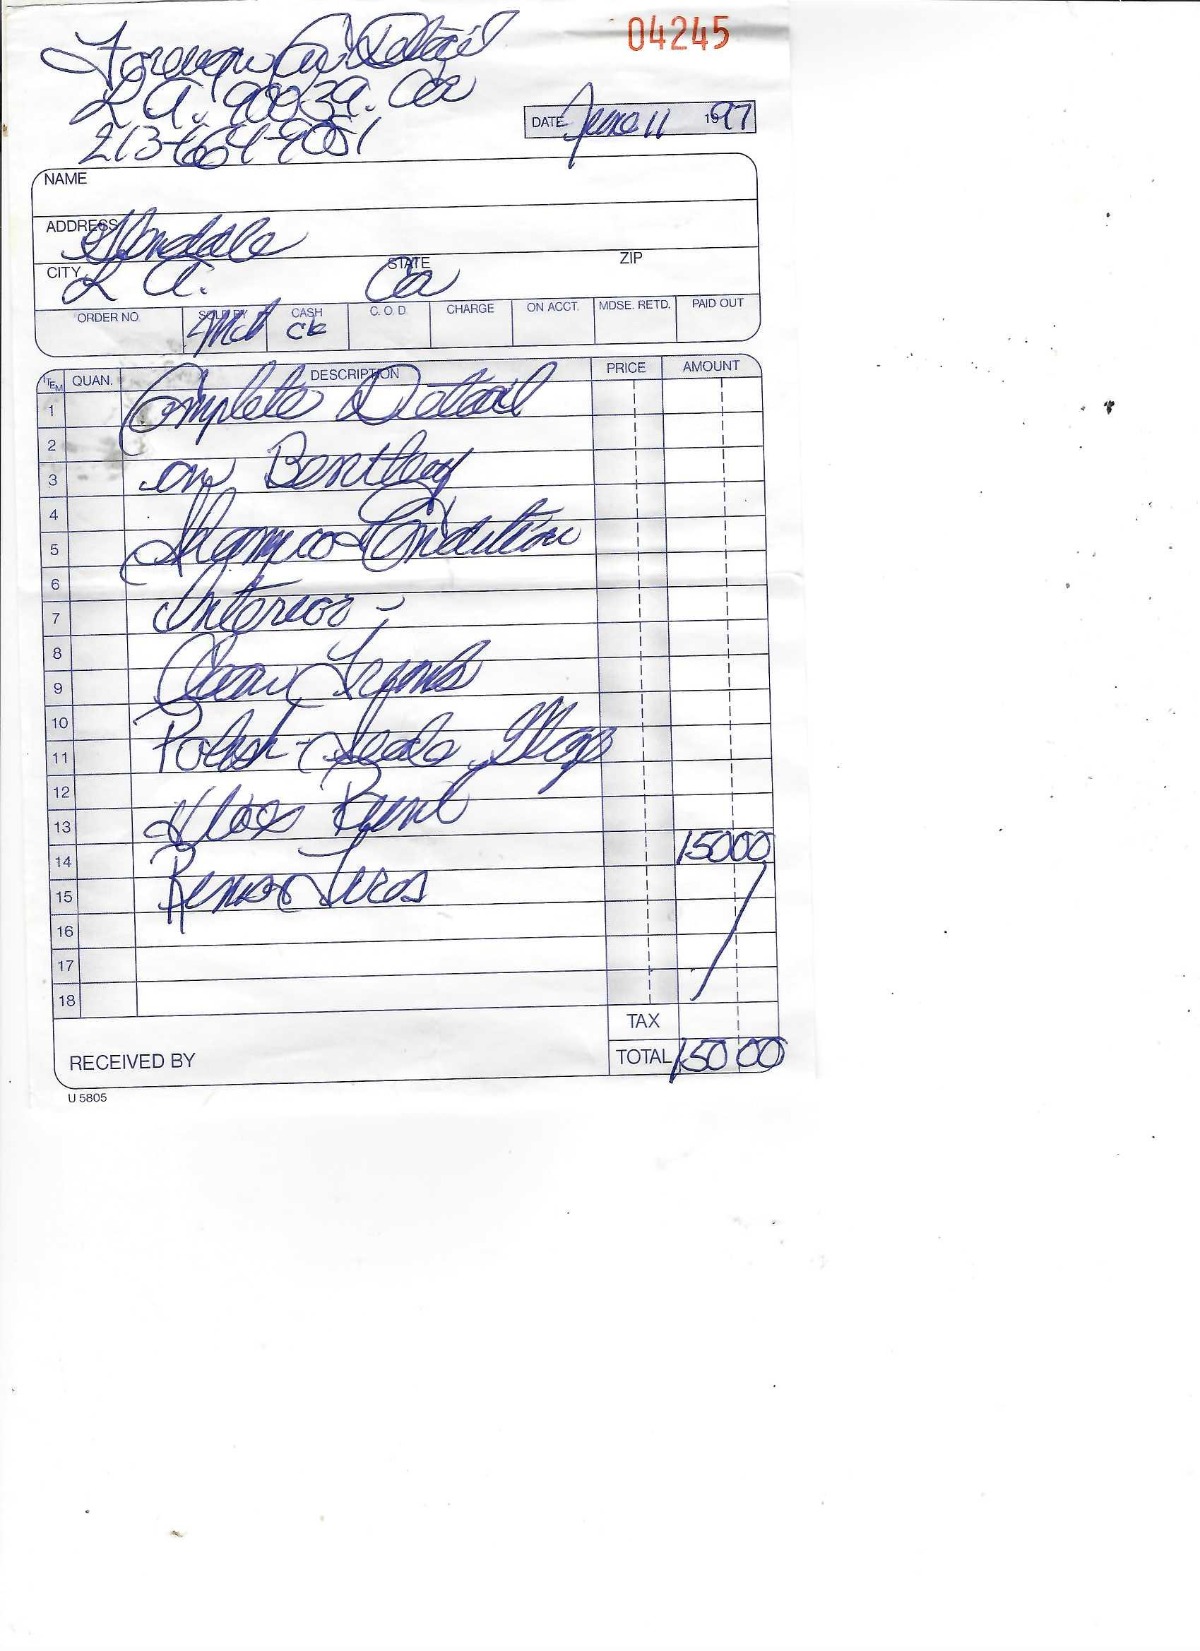 04245
Foreign Car Detail
L A. 90039. Ca
213-664-9051
DATE June 11 1997
NAME
ADDRESS Glendale
CITY L A. STATE Ca ZIP
ORDER NO. SOLD BY CASH C.O.D. CHARGE ON ACCT. MDSE. RETD. PAID OUT
ck
ITEM QUAN. DESCRIPTION PRICE AMOUNT
1 Complete Detail
2
3 on Bentley
4
5 Shampoo - Condition
6
7 Interior -
8
9 Clean
10
11 Polish - Seale
12
13 Paint
14 150 00
15
16
17
18
TAX
RECEIVED BY
TOTAL 150 00
U 5805